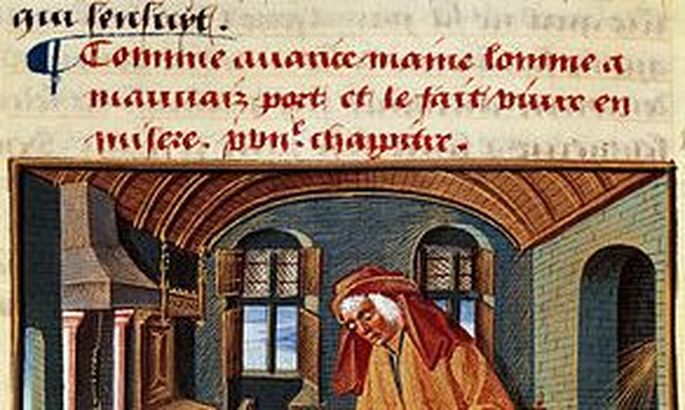 qui sensuyt.
Comme auarice maine lomme a
mauuaiz port et le fait viure en
misere. chapitre.